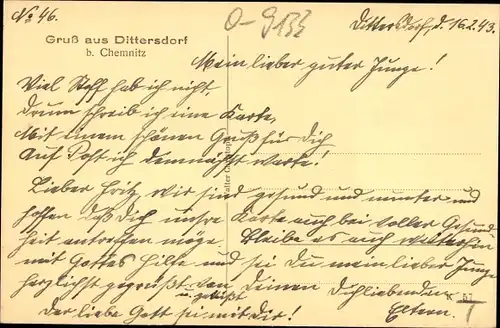 No 46.
O-9133
Dittersdorf, d. 16.2.43.
Gruß aus Dittersdorf
b. Chemnitz
Mein lieber guter Junge!
Viel Stoff hab ich nicht,
drum schreib ich eine Karte,
Mit einem schönen Gruß für Dich
Auf Post ich demnächst warte!
Lieber Fritz, wir sind gesund und munter und
hoffen daß Dich unsre Karte auch bei voller Gesund
heit antreffen möge. Bleibe es auch weiterhin
mit Gottes Hilfe und sei Du mein lieber Junge
herzlichst gegrüßt von Deinen Dichliebenden
u. geküßt
Eltern.
Der liebe Gott sei mit Dir!